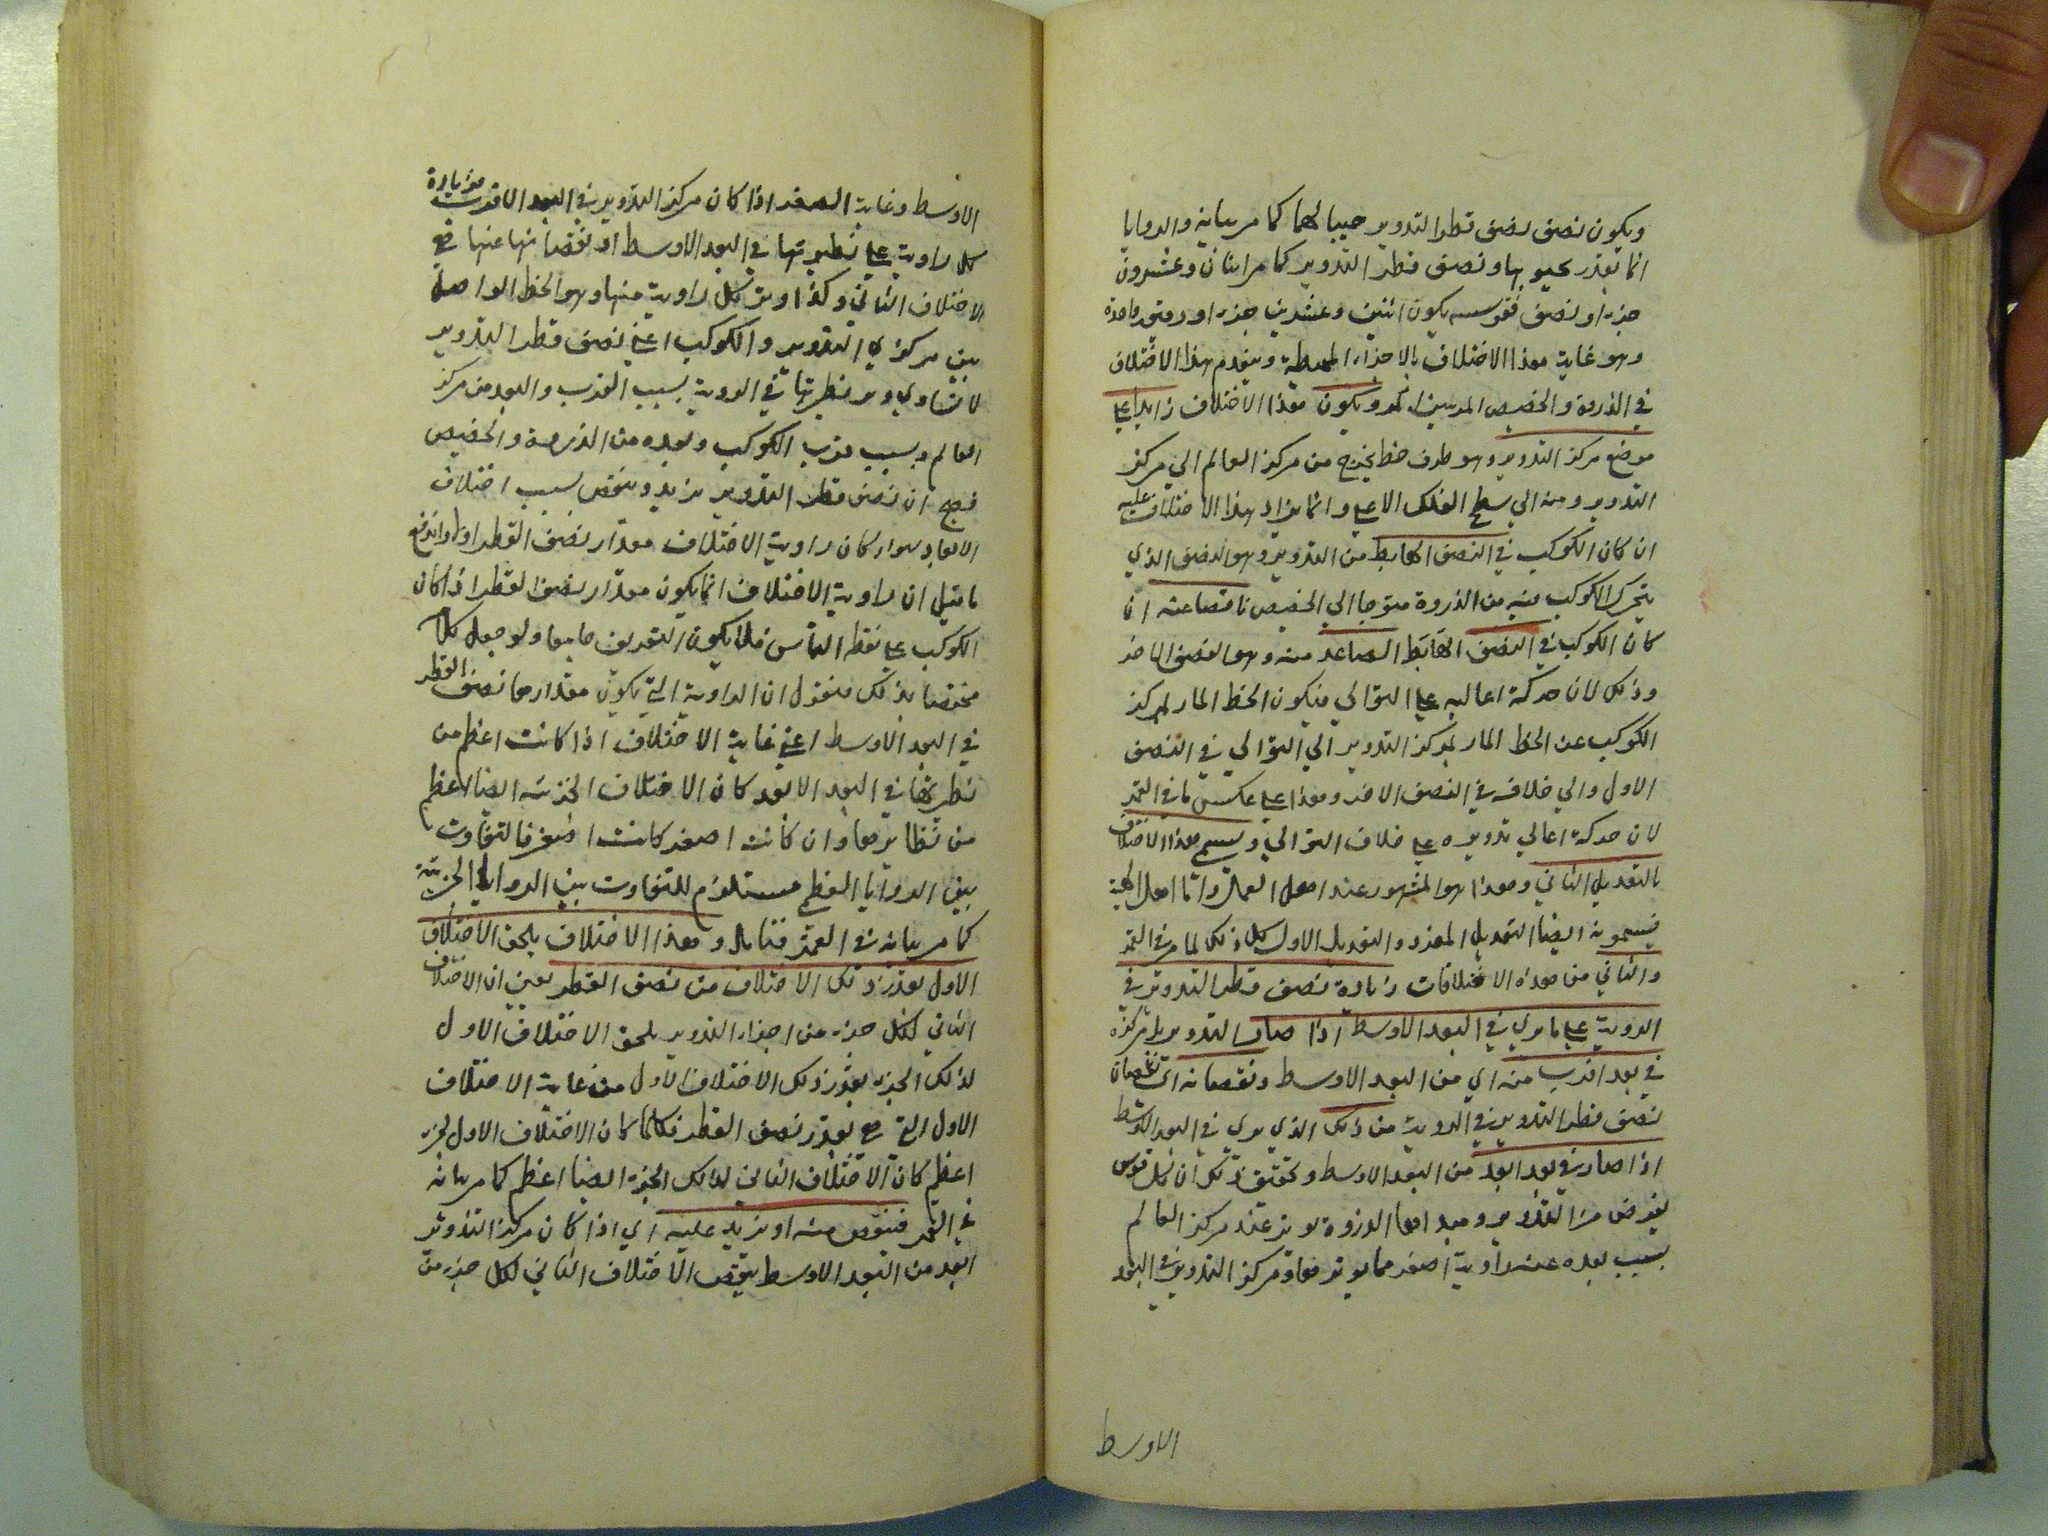 ويكون نصف نصف قطر التدوير جيبا لها كما مر بيانه والزوايا
انما تقدر بجيوبها ونصف قطر التدوير كما مر اثنان وعشرون
جزءا ونصف فقوسه يكون اثنين وعشرين جزءا ودقيقة واحدة
وهو غاية هذا الاختلاف بالاجزاء المحيطة وينعدم هذا الاختلاف
في الذروة والحضيض المرئيين ويكون هذا الاختلاف زايدا على
موضع مركز التدوير وهو طرف خط يخرج من مركز العالم الي مركز
التدوير ومنه الي سطح الفلك الاعلى وانما يزاد هذا الاختلاف عليه
ان كان الكوكب في النصف الهابط من التدوير وهو النصف الذي
يتحرك الكوكب فيه من الذروة متوجها الي الحضيض ناقصا عنه ان
كان الكوكب في النصف الصاعد منه وهو النصف الاخر
وذلك لان حركة اعاليه على التوالي فيكون الخط المار بمركز
الكوكب عن الخط المار بمركز التدوير الي التوالي في النصف
الاول والي خلافه في النصف الاخر وهذا على عكس ما في القمر
لان حركة اعالي تدويره على خلاف التوالي ويسمى هذا الاختلاف
بالتعديل الثاني وهذا هو المشهور عند اهل العمل واما اهل الهيئة
فيسمونه ايضا التعديل المفرد والتعديل الاول كل ذلك لما مر في القمر
والثاني من هذه الاختلافات زيادة نصف قطر التدوير في
الرؤية على ما يرى في البعد الاوسط اذا صار التدوير بل مركزه
في بعد اقرب منه اي من البعد الاوسط ونقصانه اي نقصان
نصف قطر التدوير في الرؤية من ذلك الذي يرى في البعد الاوسط
اذا صار في بعد ابعد من البعد الاوسط وتحقيق ذلك ان كل قوس
يفرض من التدوير ومبداها الذروة يوتر عند مركز العالم
بسبب بعده عنه زاوية اصغر مما يوترها ومركز التدوير في البعد
الاوسط
الاوسط وغاية الصغر اذا كان مركز التدوير في البعد الاقرب فزيادة
كل زاوية على نظيرتها في البعد الاوسط او نقصانها عنها هي
الاختلاف الثاني وكذا وتر كل زاوية منها وهو الخط الواصل
بين مركزي التدوير والكوكب اعني نصف قطر التدوير
لا يساوي وتر نظيرتها في الرؤية بسبب القرب والبعد من مركز
العالم وبسبب قرب الكوكب وبعده من الذروة والحضيض
فصح ان نصف قطر التدوير يزيد وينقص بسبب اختلاف
الابعاد سواء كان زاوية الاختلاف مقدار نصف القطر اولا واندفع
ما قيل ان زاوية الاختلاف انما يكون مقدار نصف القطر اذا كان
الكوكب على نقطة التماس فلا يكون التعريف جامعا ولو جعل
مختصا بذلك فنقول ان الزاوية التي يكون مقدارها نصف القطر
في البعد الاوسط اعني غاية الاختلاف اذا كانت اعظم من
نظيرتها في البعد الابعد كان الاختلاف الجزئية ايضا اعظم
من نظايرها وان كانت اصغر كانت اصغر فالتفاوت
بين الزوايا العظمى مستلزم للتفاوت بين الزوايا الجزئية
كما مر بيانه في القمر فتامل وهذا الاختلاف يلحق الاختلاف
الاول بقدر ذلك الاختلاف من نصف القطر يعني ان الاختلاف
الثاني لكل جزء من اجزاء التدوير يلحق الاختلاف الاول
لذلك الجزء بقدر ذلك الاختلاف الاول من غاية الاختلاف
الاول التي هي بقدر نصف القطر فكلما كان الاختلاف الاول لجزء
اعظم كان الاختلاف الثاني لذلك الجزء ايضا اعظم كما مر بيانه
في القمر فينقص منه او يزيد عليه اي اذا كان مركز التدوير
ابعد من البعد الاوسط ينقص الاختلاف الثاني لكل جزء من